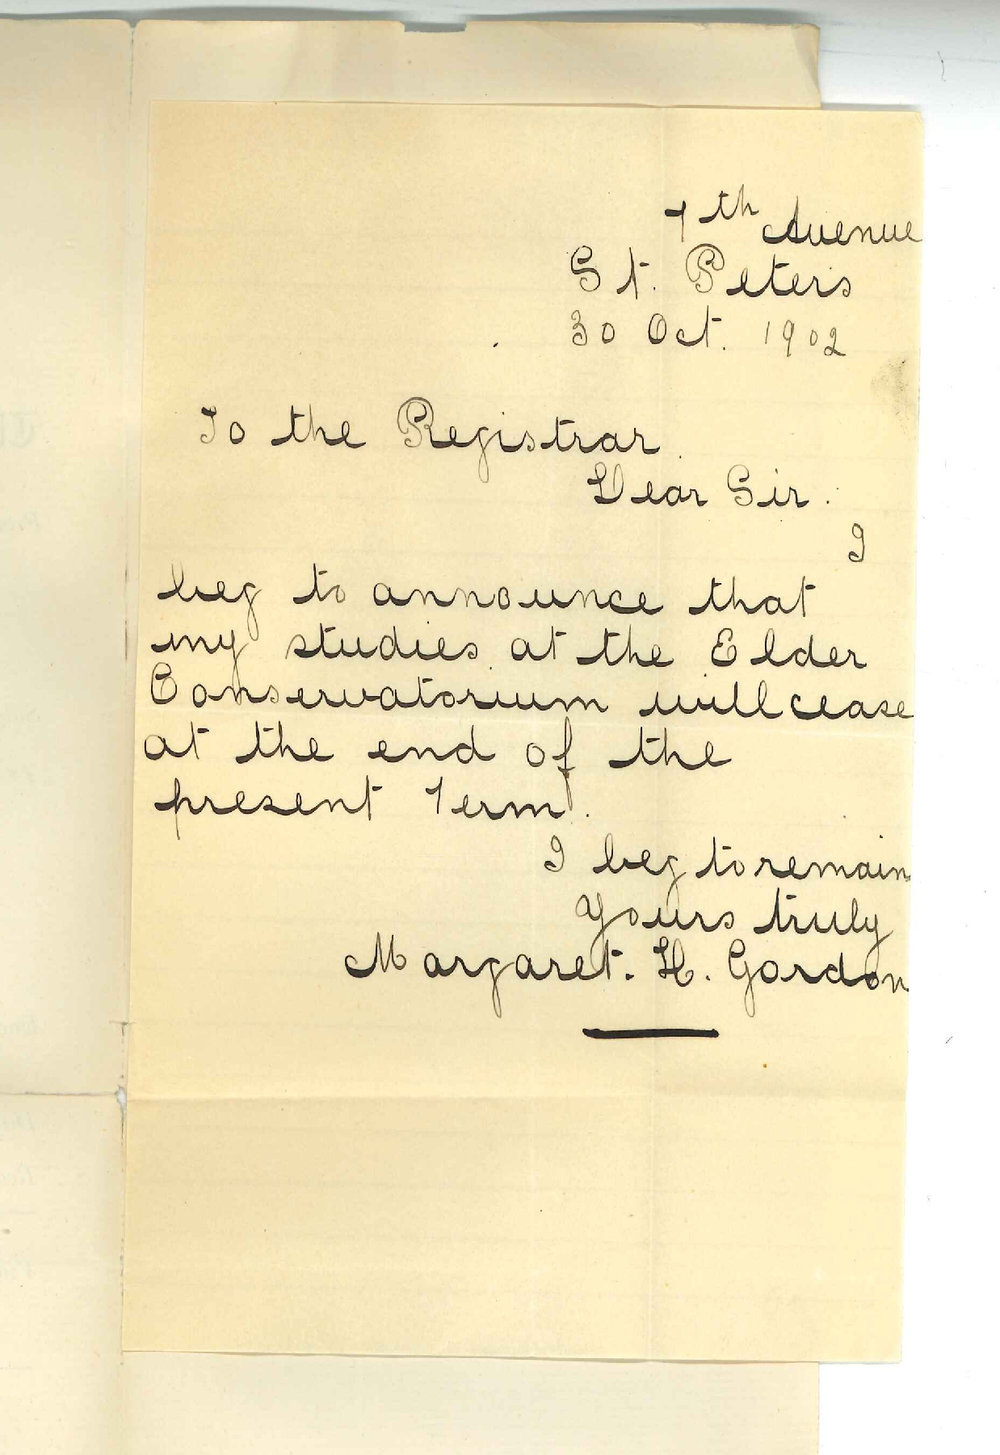 7th Avenue
St. Peters
30 Oct. 1902
To the Registrar.
Dear Sir.
I
beg to announce that
my studies at the Elder
Conservatorium will cease
at the end of the
present Term.
I beg to remain
Yours truly
Margaret. H. Gordon